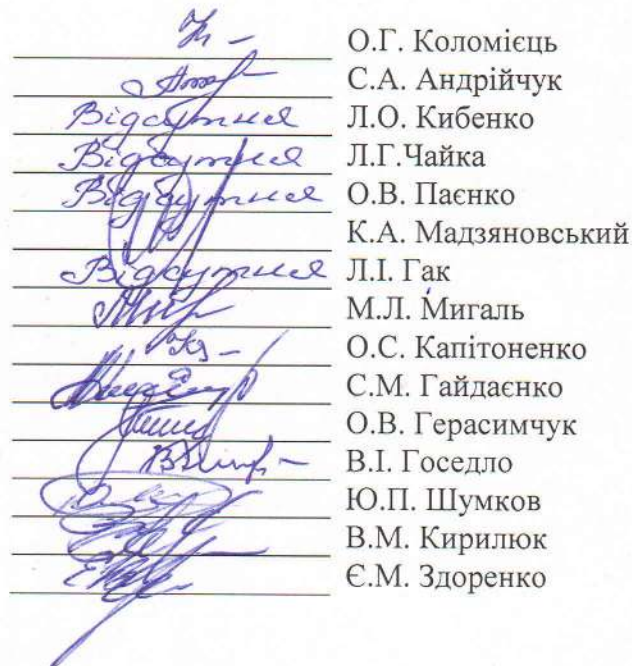 О.Г. Коломієць
С.А. Андрійчук
Відсутня Л.О. Кибенко
Відсутня Л.Г.Чайка
Відсутня О.В. Паєнко
К.А. Мадзяновський
Відсутня Л.І. Гак
М.Л. Мигаль
О.С. Капітоненко
С.М. Гайдаєнко
О.В. Герасимчук
В.І. Госедло
Ю.П. Шумков
В.М. Кирилюк
Є.М. Здоренко